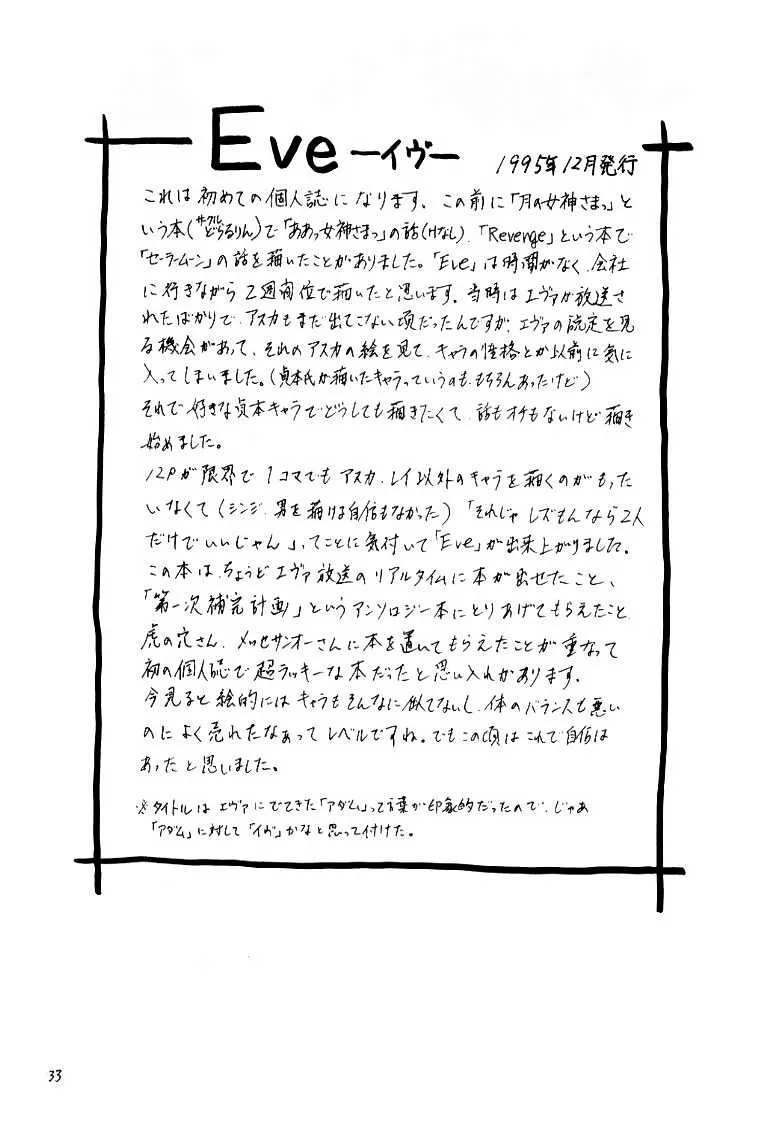 Eve ーイヴー 1995年12月発行
これは初めての個人誌になります、この前に「月の女神さまっ」と
いう本(サークルどらるりん)で「ああっ女神さまっ」の話(Hなし)、「Revenge」という本で
「セーラームーン」の話を描いたことがありました。「Eve」は時間がなく、会社
に行きながら2週間位で描いたと思います。当時はエヴァが放送さ
れたばかりで、アスカもまだ出てこない頃だったんですが、エヴァの設定を見
る機会があって、それのアスカの絵を見て、キャラの性格とか以前に気に
入ってしまいました。(貞本氏が描いたキャラっていうのも、もちろんあったけど)
それで好きな貞本キャラでどうしても描きたくて、話もオチもないけど描き
始めました。
12Pが限界で1コマでもアスカ、レイ以外のキャラを描くのがもった
いなくて(シンジ、男を描ける自信もなかった)「それじゃレズもんなら2人
だけでいいじゃん」ってことに気付いて「Eve」が出来上がりました。
この本は、ちょうどエヴァ放送のリアルタイムに本が出せたこと、
「第一次補完計画」というアンソロジー本にとりあげてもらえたこと
虎の穴さん、メッセサンオーさんに本を置いてもらえたことが重なって
初の個人誌で超ラッキーな本だったと思い入れがあります。
今見ると絵的にはキャラもそんなに似てないし、体のバランスも悪い
のによく売れたなあってレベルですね。でもこの頃はこれで自信は
あったと思いました。
※タイトルはエヴァにでてきた「アダム」って言葉が印象的だったので、じゃあ
「アダム」に対して「イヴ」かなと思って付けた。
33